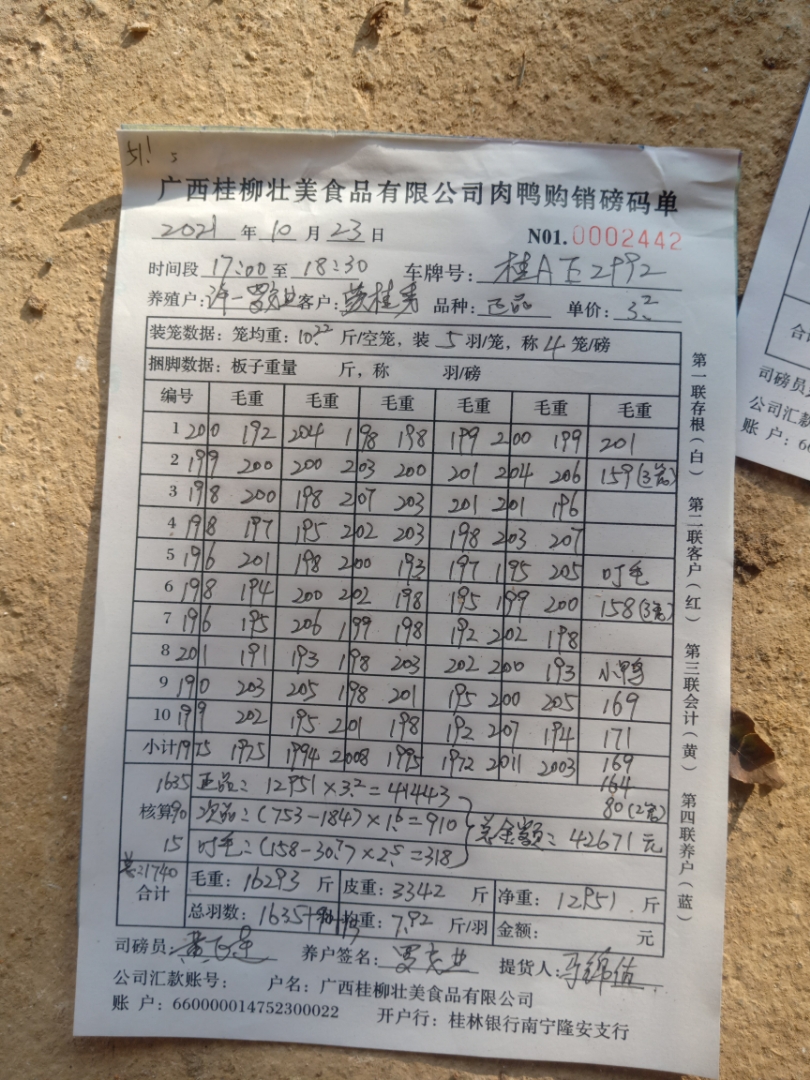 广西桂柳壮美食品有限公司肉鸭购销磅码单
2021 年 10 月 23 日 N01.0002442
时间段 17:00 至 18:30 车牌号: 桂A
养殖户: 客户: 品种: 正品 单价: 3.2
装笼数据: 笼均重: 10.22 斤/空笼, 装 5 羽/笼, 称 4 笼/磅
捆脚数据: 板子重量 斤, 称 羽/磅
编号 毛重 毛重 毛重 毛重 毛重 毛重
1 200 192 204 198 198 199 200 199 201
2 199 200 200 203 200 201 204 206 159(3笼)
3 198 200 198 207 203 201 201 196
4 198 197 195 202 203 198 203 207
5 196 201 198 200 193 197 195 205 叮毛
6 198 194 200 202 198 195 199 200 158(3笼)
7 196 195 206 199 198 192 202 198
8 201 191 193 198 203 202 200 193 小鸭
9 190 203 205 198 201 195 200 205 169
10 199 202 195 201 198 192 207 194 171
小计 1975 1975 1994 2008 1995 1972 2011 2003 169
164
80(2笼)
核算 1635 90 15
正品: 12951×3.2=41443
次品: (753-184)×1.6=910
叮毛: (158-30.7)×2.5=318
总金额: 42671元
总:1740
合计
毛重: 16293 斤 皮重: 3342 斤 净重: 12951 斤
总羽数: 1635 均重: 7.92 斤/羽 金额: 元
司磅员: 养户签名: 提货人:
公司汇款账号: 户名: 广西桂柳壮美食品有限公司
账 户: 660000014752300022 开户行: 桂林银行南宁隆安支行
第一联存根(白) 第二联客户(红) 第三联会计(黄) 第四联养户(蓝)
司磅员
公司汇款
账 户: 66